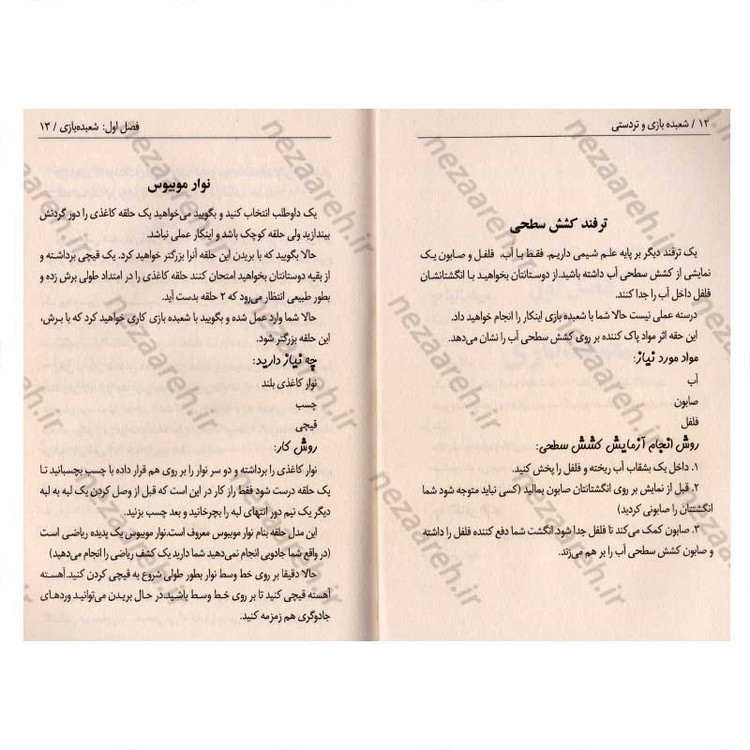 ۱۲ / شعبده بازی و تردستی
ترفند کشش سطحی
یک ترفند دیگر بر پایه علم شیمی داریم، فقط با آب، فلفل و صابون یک
نمایشی از کشش سطحی آب داشته باشید. از دوستانتان بخواهید با انگشتانشان
فلفل داخل آب را جدا کنند.
درسته عملی نیست حالا شما با شعبده بازی اینکار را انجام خواهید داد.
این حقه اثر مواد پاک کننده بر روی کشش سطحی آب را نشان می‌دهد.
مواد مورد نیاز:
آب
صابون
فلفل
روش انجام آزمایش کشش سطحی:
۱. داخل یک بشقاب آب ریخته و فلفل را پخش کنید.
۲. قبل از نمایش بر روی انگشتانتان صابون بمالید (کسی نباید متوجه شود شما
انگشتتان را صابونی کردید)
۳. صابون کمک می‌کند تا فلفل جدا شود. انگشت شما دفع کننده فلفل را داشته
و صابون کشش سطحی آب را بر هم می‌زند.
فصل اول: شعبده‌بازی / ۱۳
نوار موبیوس
یک داوطلب انتخاب کنید و بگویید می‌خواهید یک حلقه کاغذی را دور گردنش
بیندازید ولی حلقه کوچک باشد و اینکار عملی نباشد.
حالا بگویید که با بریدن این حلقه آنرا بزرگتر خواهید کرد. یک قیچی برداشته و
از بقیه دوستانتان بخواهید امتحان کنند حلقه کاغذی را در امتداد طولی برش زده و
بطور طبیعی انتظار می‌رود که ۲ حلقه بدست آید.
حالا شما وارد عمل شده و بگویید با شعبده بازی کاری خواهید کرد که با برش،
این حلقه بزرگتر شود.
چه نیاز دارید:
نوار کاغذی بلند
چسب
قیچی
روش کار:
نوار کاغذی را برداشته و دو سر نوار را بر روی هم قرار داده با چسب بچسبانید تا
یک حلقه درست شود فقط راز کار در این است که قبل از وصل کردن یک لبه به لبه
دیگر یک نیم دور انتهای لبه را بچرخانید و بعد چسب بزنید.
این مدل حلقه بنام نوار موبیوس معروف است. نوار موبیوس یک پدیده ریاضی است
(در واقع شما جادویی انجام نمی‌دهید شما دارید یک کشف ریاضی را انجام می‌دهید)
حالا دقیقا بر روی خط وسط نوار بطور طولی شروع به قیچی کردن کنید. آهسته
آهسته قیچی کنید تا بر روی خط وسط باشید. در حال بریدن می‌توانید وردهای
جادوگری هم زمزمه کنید.
nezaareh.ir
nezaareh.ir
nezaareh.ir
nezaareh.ir
nezaareh.ir
nezaareh.ir
nezaareh.ir
nezaareh.ir